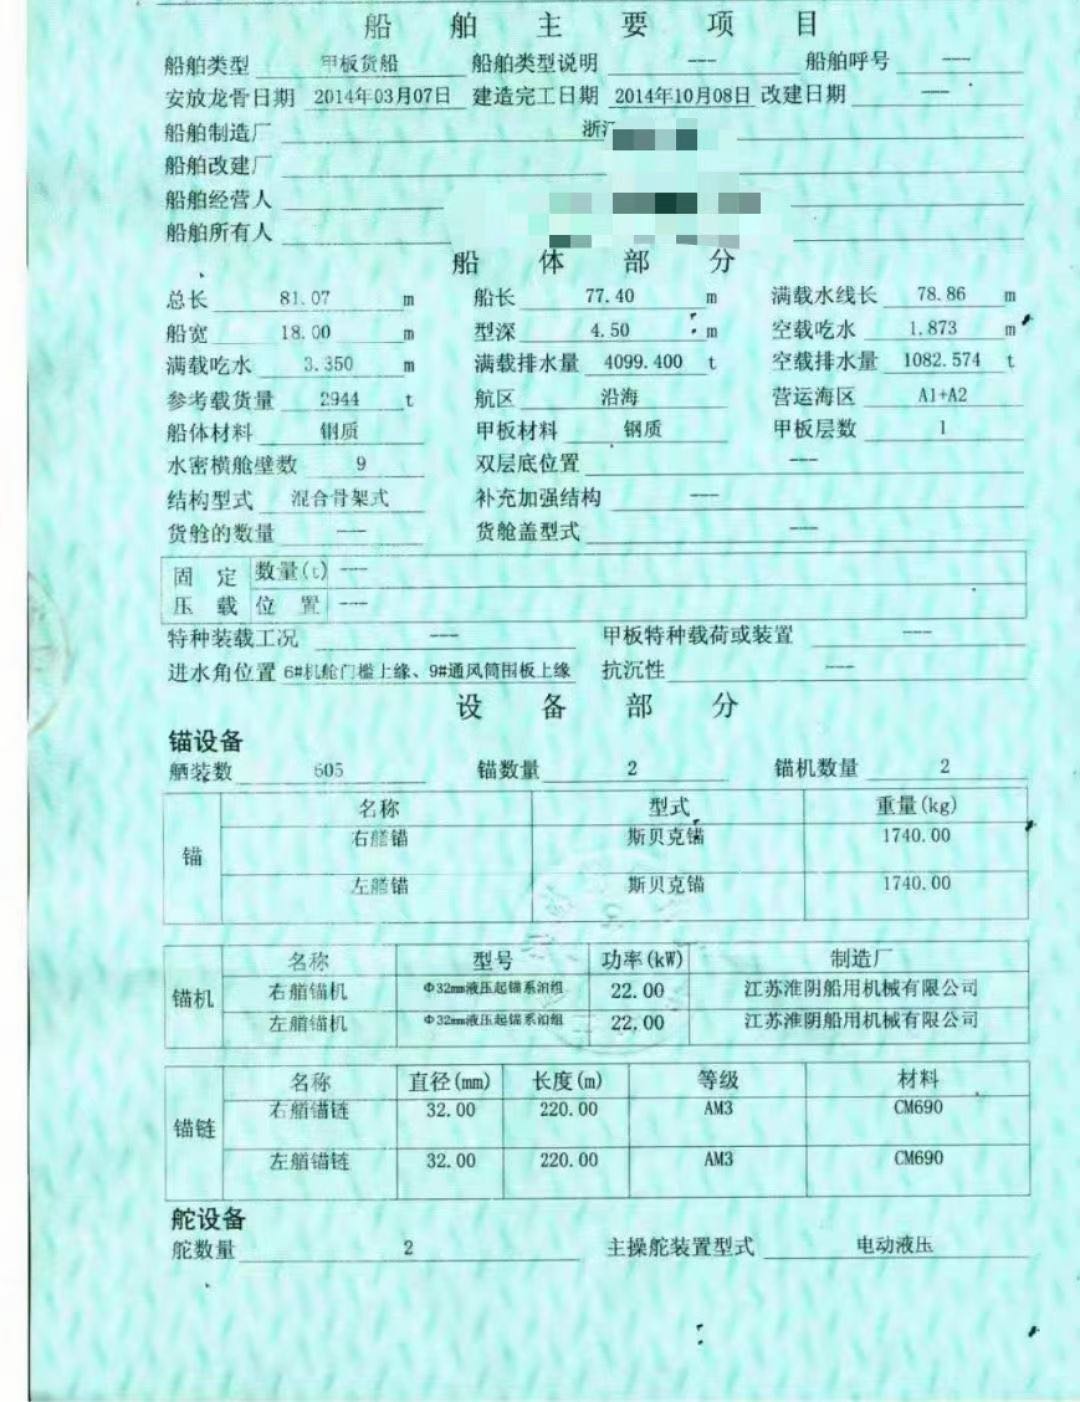 船舶主要项目
船舶类型 甲板货船 船舶类型说明 --- 船舶呼号 ---
安放龙骨日期 2014年03月07日 建造完工日期 2014年10月08日 改建日期 ---
船舶制造厂 浙江
船舶改建厂
船舶经营人
船舶所有人
船体部分
总长 81.07 m 船长 77.40 m 满载水线长 78.86 m
船宽 18.00 m 型深 4.50 m 空载吃水 1.873 m
满载吃水 3.350 m 满载排水量 4099.400 t 空载排水量 1082.574 t
参考载货量 2944 t 航区 沿海 营运海区 A1+A2
船体材料 钢质 甲板材料 钢质 甲板层数 1
水密横舱壁数 9 双层底位置 ---
结构型式 混合骨架式 补充加强结构 ---
货舱的数量 --- 货舱盖型式 ---
固定 数量(t) ---
压载 位置 ---
特种装载工况 --- 甲板特种载荷或装置 ---
进水角位置 6#机舱门槛上缘、9#通风筒围板上缘 抗沉性 ---
设备部分
锚设备
舾装数 605 锚数量 2 锚机数量 2
名称 型式 重量(kg)
锚
右艏锚 斯贝克锚 1740.00
左艏锚 斯贝克锚 1740.00
名称 型号 功率(kW) 制造厂
锚机
右艏锚机 Φ32mm液压起锚系泊组 22.00 江苏淮阴船用机械有限公司
左艏锚机 Φ32mm液压起锚系泊组 22.00 江苏淮阴船用机械有限公司
名称 直径(mm) 长度(m) 等级 材料
锚链
右艏锚链 32.00 220.00 AM3 CM690
左艏锚链 32.00 220.00 AM3 CM690
舵设备
舵数量 2 主操舵装置型式 电动液压